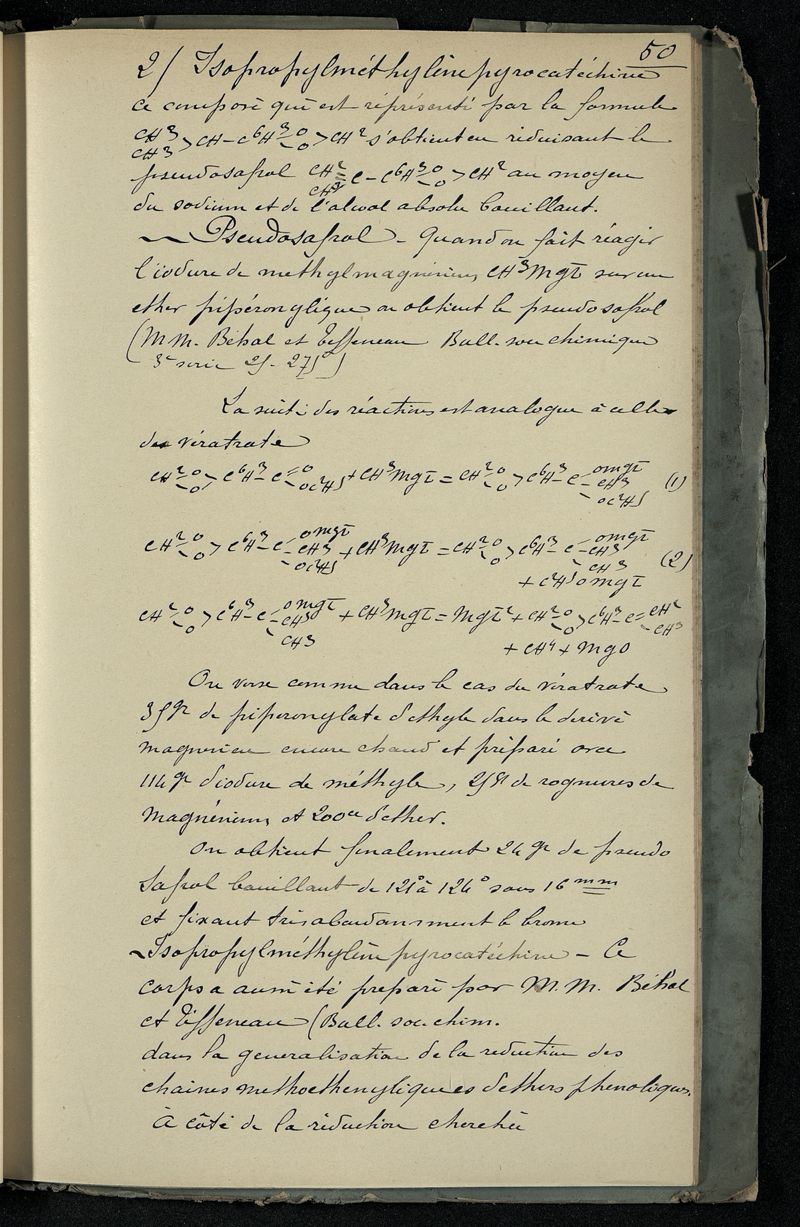 50
2/ Isopropylméthylène pyrocatéchine
Ce composé qui est représenté par la formule
CH3 CH3 > CH – C6H3 – O – O > CH2 s'obtient en réduisant le
pseudosafrol CH2 CH3 = C – C6H3 – O – O > CH2 au moyen
du sodium et de l'alcool absolu bouillant.
Pseudosafrol – Quand on fait réagir
l'iodure de methylmagnésium CH3MgI sur un
ether pipéronylique on obtient le pseudosafrol
(MM. Béhal et Tiffeneau Bull. soc chimique
3e serie 25. 275)
La suite des réactions est analogue à celle
du vératrate
CH2 – O – O > C6H3 – C = O – OC2H5 + CH3MgI = CH2 – O – O > C6H3 – C – OMgI – CH3 – OC2H5 (1)
CH2 – O – O > C6H3 – C – OMgI – CH3 – OC2H5 + CH3MgI = CH2 – O – O > C6H3 – C – OMgI – CH3 – CH3 (2)
+ C2H5OMgI
CH2 – O – O > C6H3 – C – OMgI – CH3 – CH3 + CH3MgI = MgI2 + CH2 – O – O > C6H3 – C = CH2 – CH3
+ CH4 + MgO
On verse comme dans le cas du vératrate
35gr de piperonylate d'ethyle dans le derivé
magnesien encore chaud et préparé avec
114gr d'iodure de méthyle, 25gr de rognures de
magnésium et 200cc d'ether.
On obtient finalement 24gr de pseudo
safrol bouillant de 121° à 124° sous 16mm
et fixant très abondamment le brome
Isopropylméthylène pyrocatéchine – Ce
corps a aussi été preparé par M.M. Béhal
et Tiffeneau (Bull. soc. chim.
dans la generalisation de la reduction des
chaines methoethenyliques d'ethers phenoliques.
à côté de la réduction cherchée